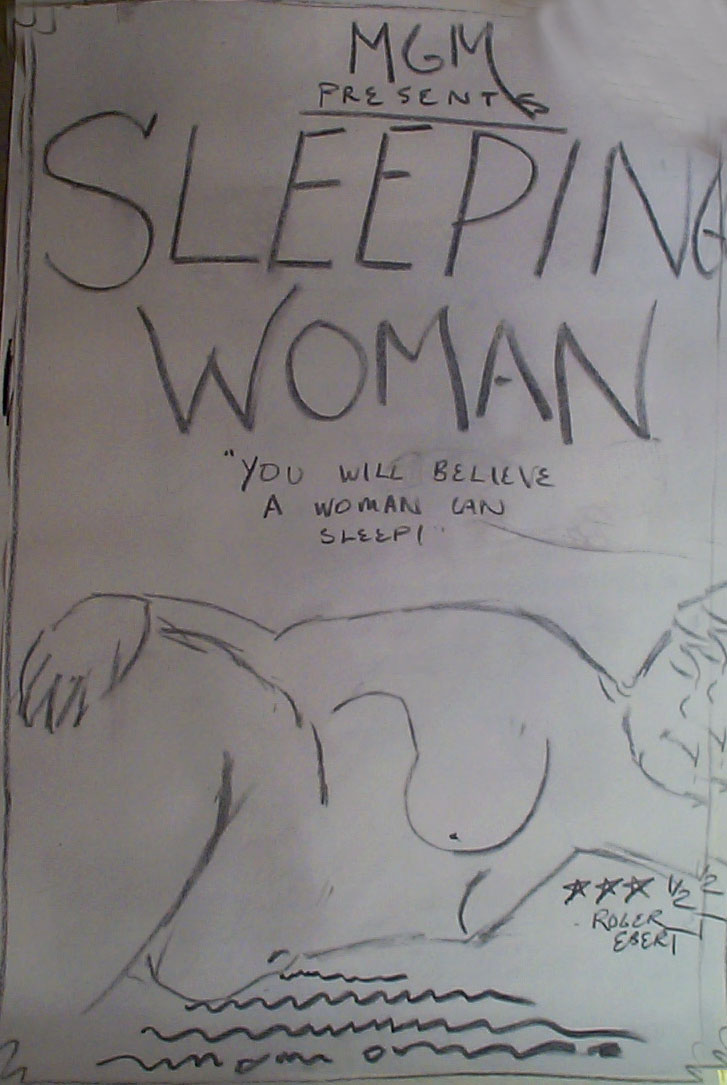 MGM
PRESENTS
SLEEPING
WOMAN
"YOU WILL BELIEVE
A WOMAN CAN
SLEEP!"
★★★ 1/2
ROGER
EBERT